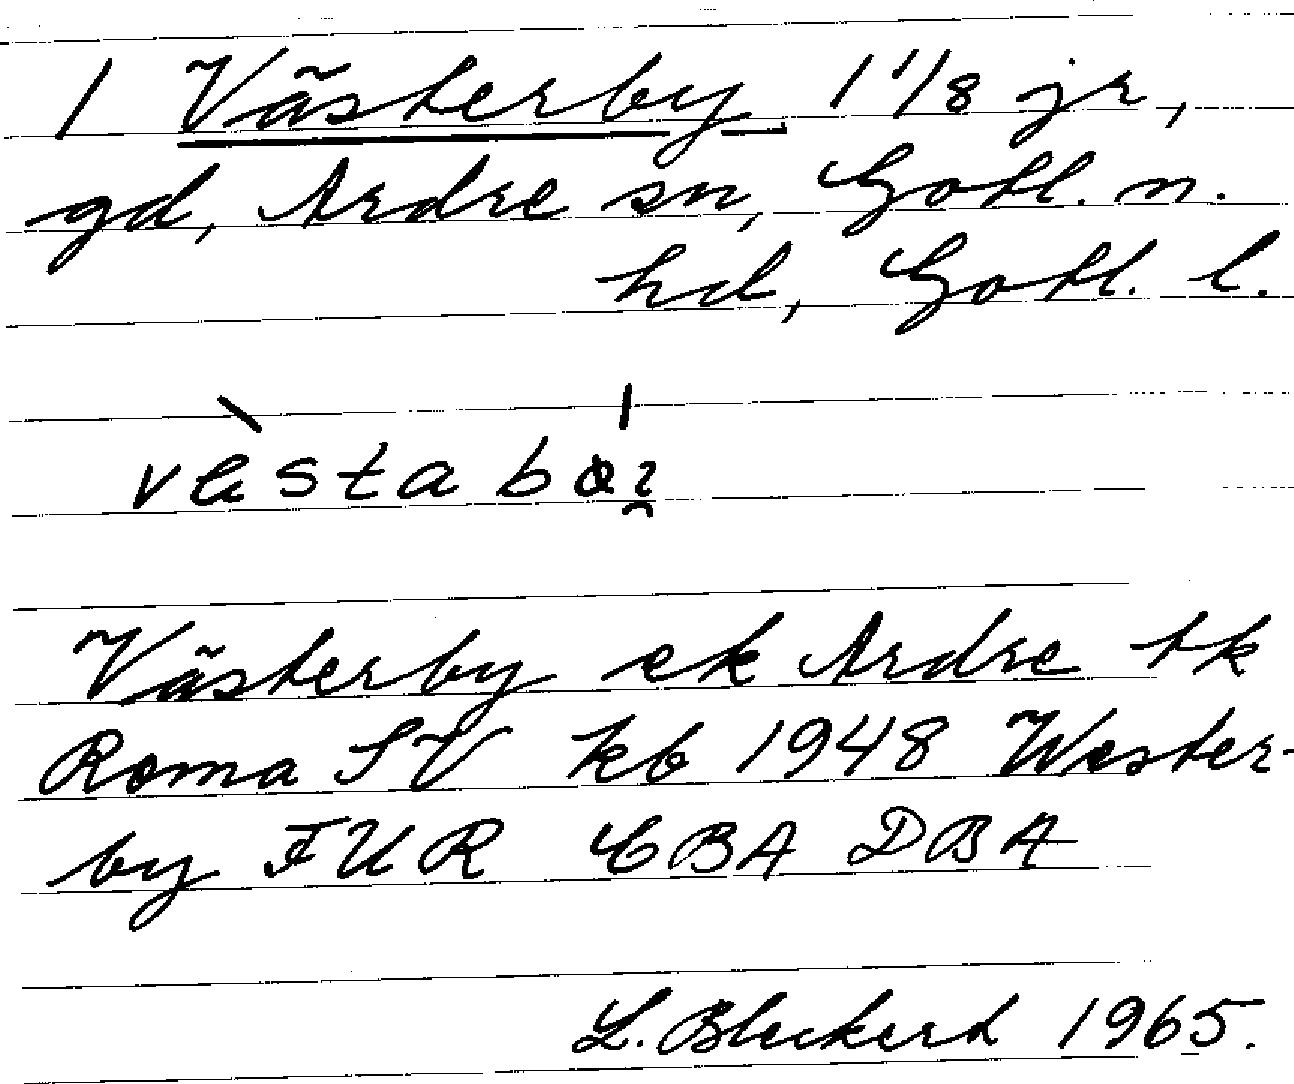 1 Västerby 1 1/8 jr,
gd, Ardre sn, Gotl. n.
hd, Gotl. l.
Västerby ek Ardre tk
Roma SV kb 1948 Wester-
by FUR CBA DBA
L. Bleckert 1965.